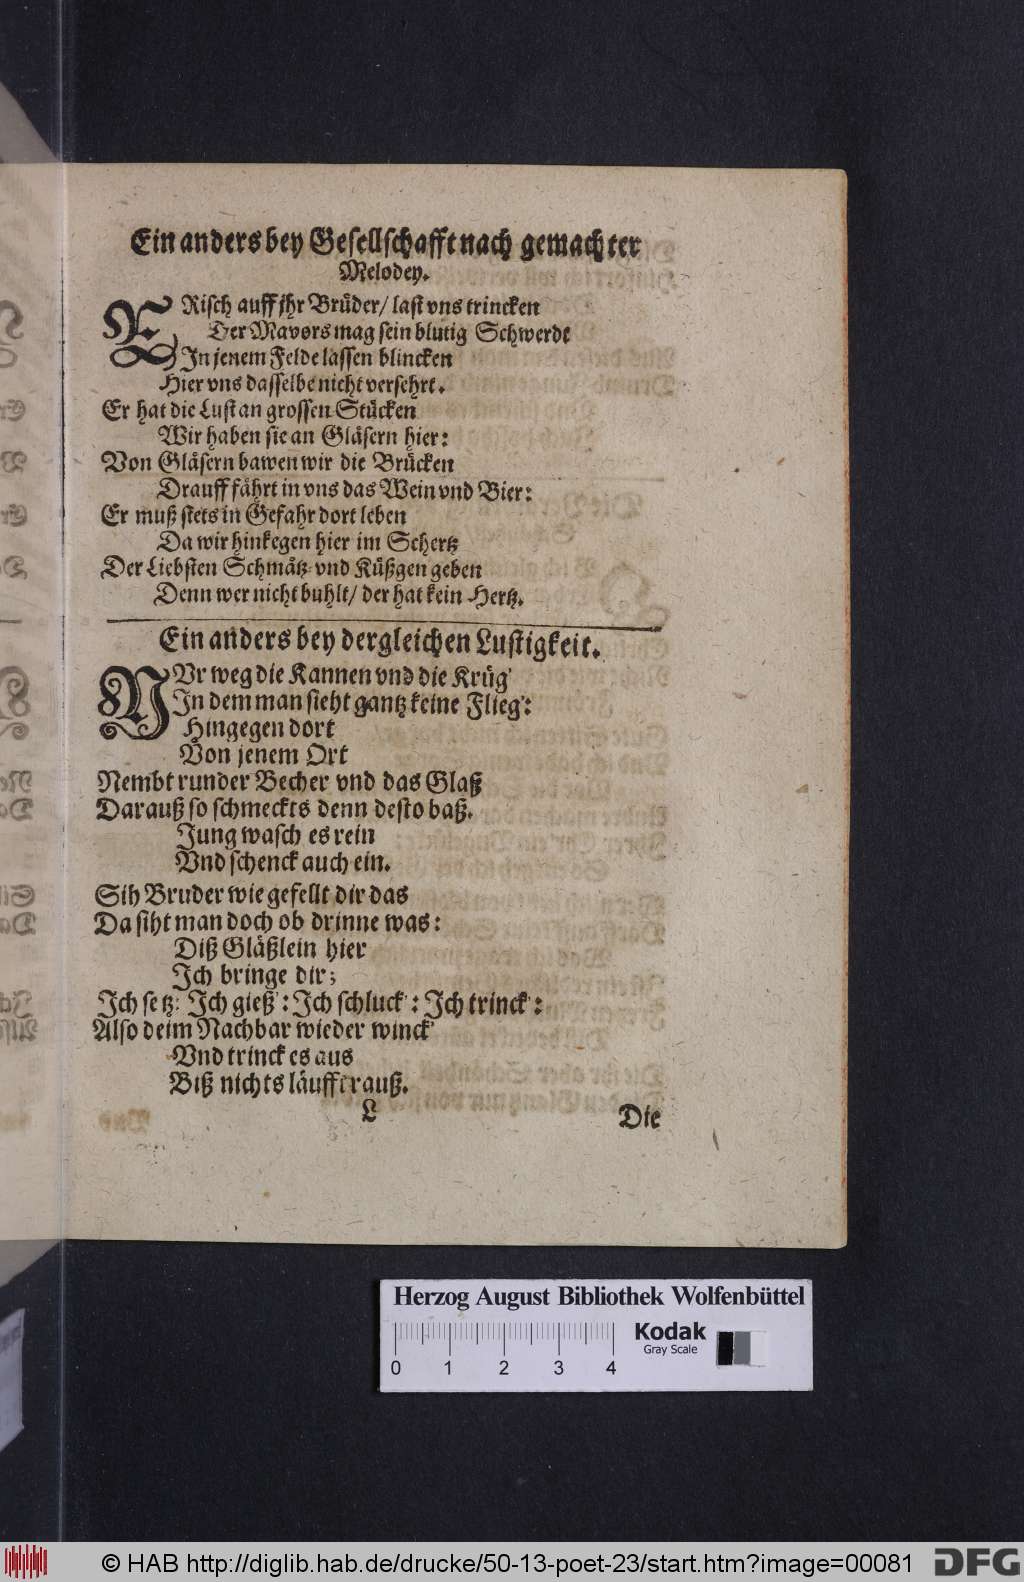 Ein anders bey Gesellschafft nach gemachter
Melodey.
FRisch auff jhr Brüder/ last vns trincken
Der Mavors mag sein blutig Schwerdt
In jenem Felde lassen blincken
Hier vns dasselbe nicht versehrt.
Er hat die Lust an grossen Stücken
Wir haben sie an Gläsern hier:
Von Gläsern bawen wir die Brücken
Drauff fährt in vns das Wein vnd Bier:
Er muß stets in Gefahr dort leben
Da wir hinkegen hier im Schertz
Der Liebsten Schmätz vnd Küßgen geben
Denn wer nicht buhlt/ der hat kein Hertz.
Ein anders bey dergleichen Lustigkeit.
NVr weg die Kannen vnd die Krüg'
In dem man sieht gantz keine Flieg':
Hingegen dort
Von jenem Ort
Nembt runder Becher vnd das Glaß
Darauß so schmeckts denn desto baß.
Jung wasch es rein
Vnd schenck auch ein.
Sih Bruder wie gefellt dir das
Da siht man doch ob drinne was:
Diß Gläßlein hier
Ich bringe dir;
Ich setz: Ich gieß': Ich schluck': Ich trinck':
Also deim Nachbar wieder winck'
Vnd trinck es aus
Biß nichts läufft rauß.
L
Die
Herzog August Bibliothek Wolfenbüttel
Kodak
Gray Scale
0 1 2 3 4
© HAB http://diglib.hab.de/drucke/50-13-poet-23/start.htm?image=00081
DFG